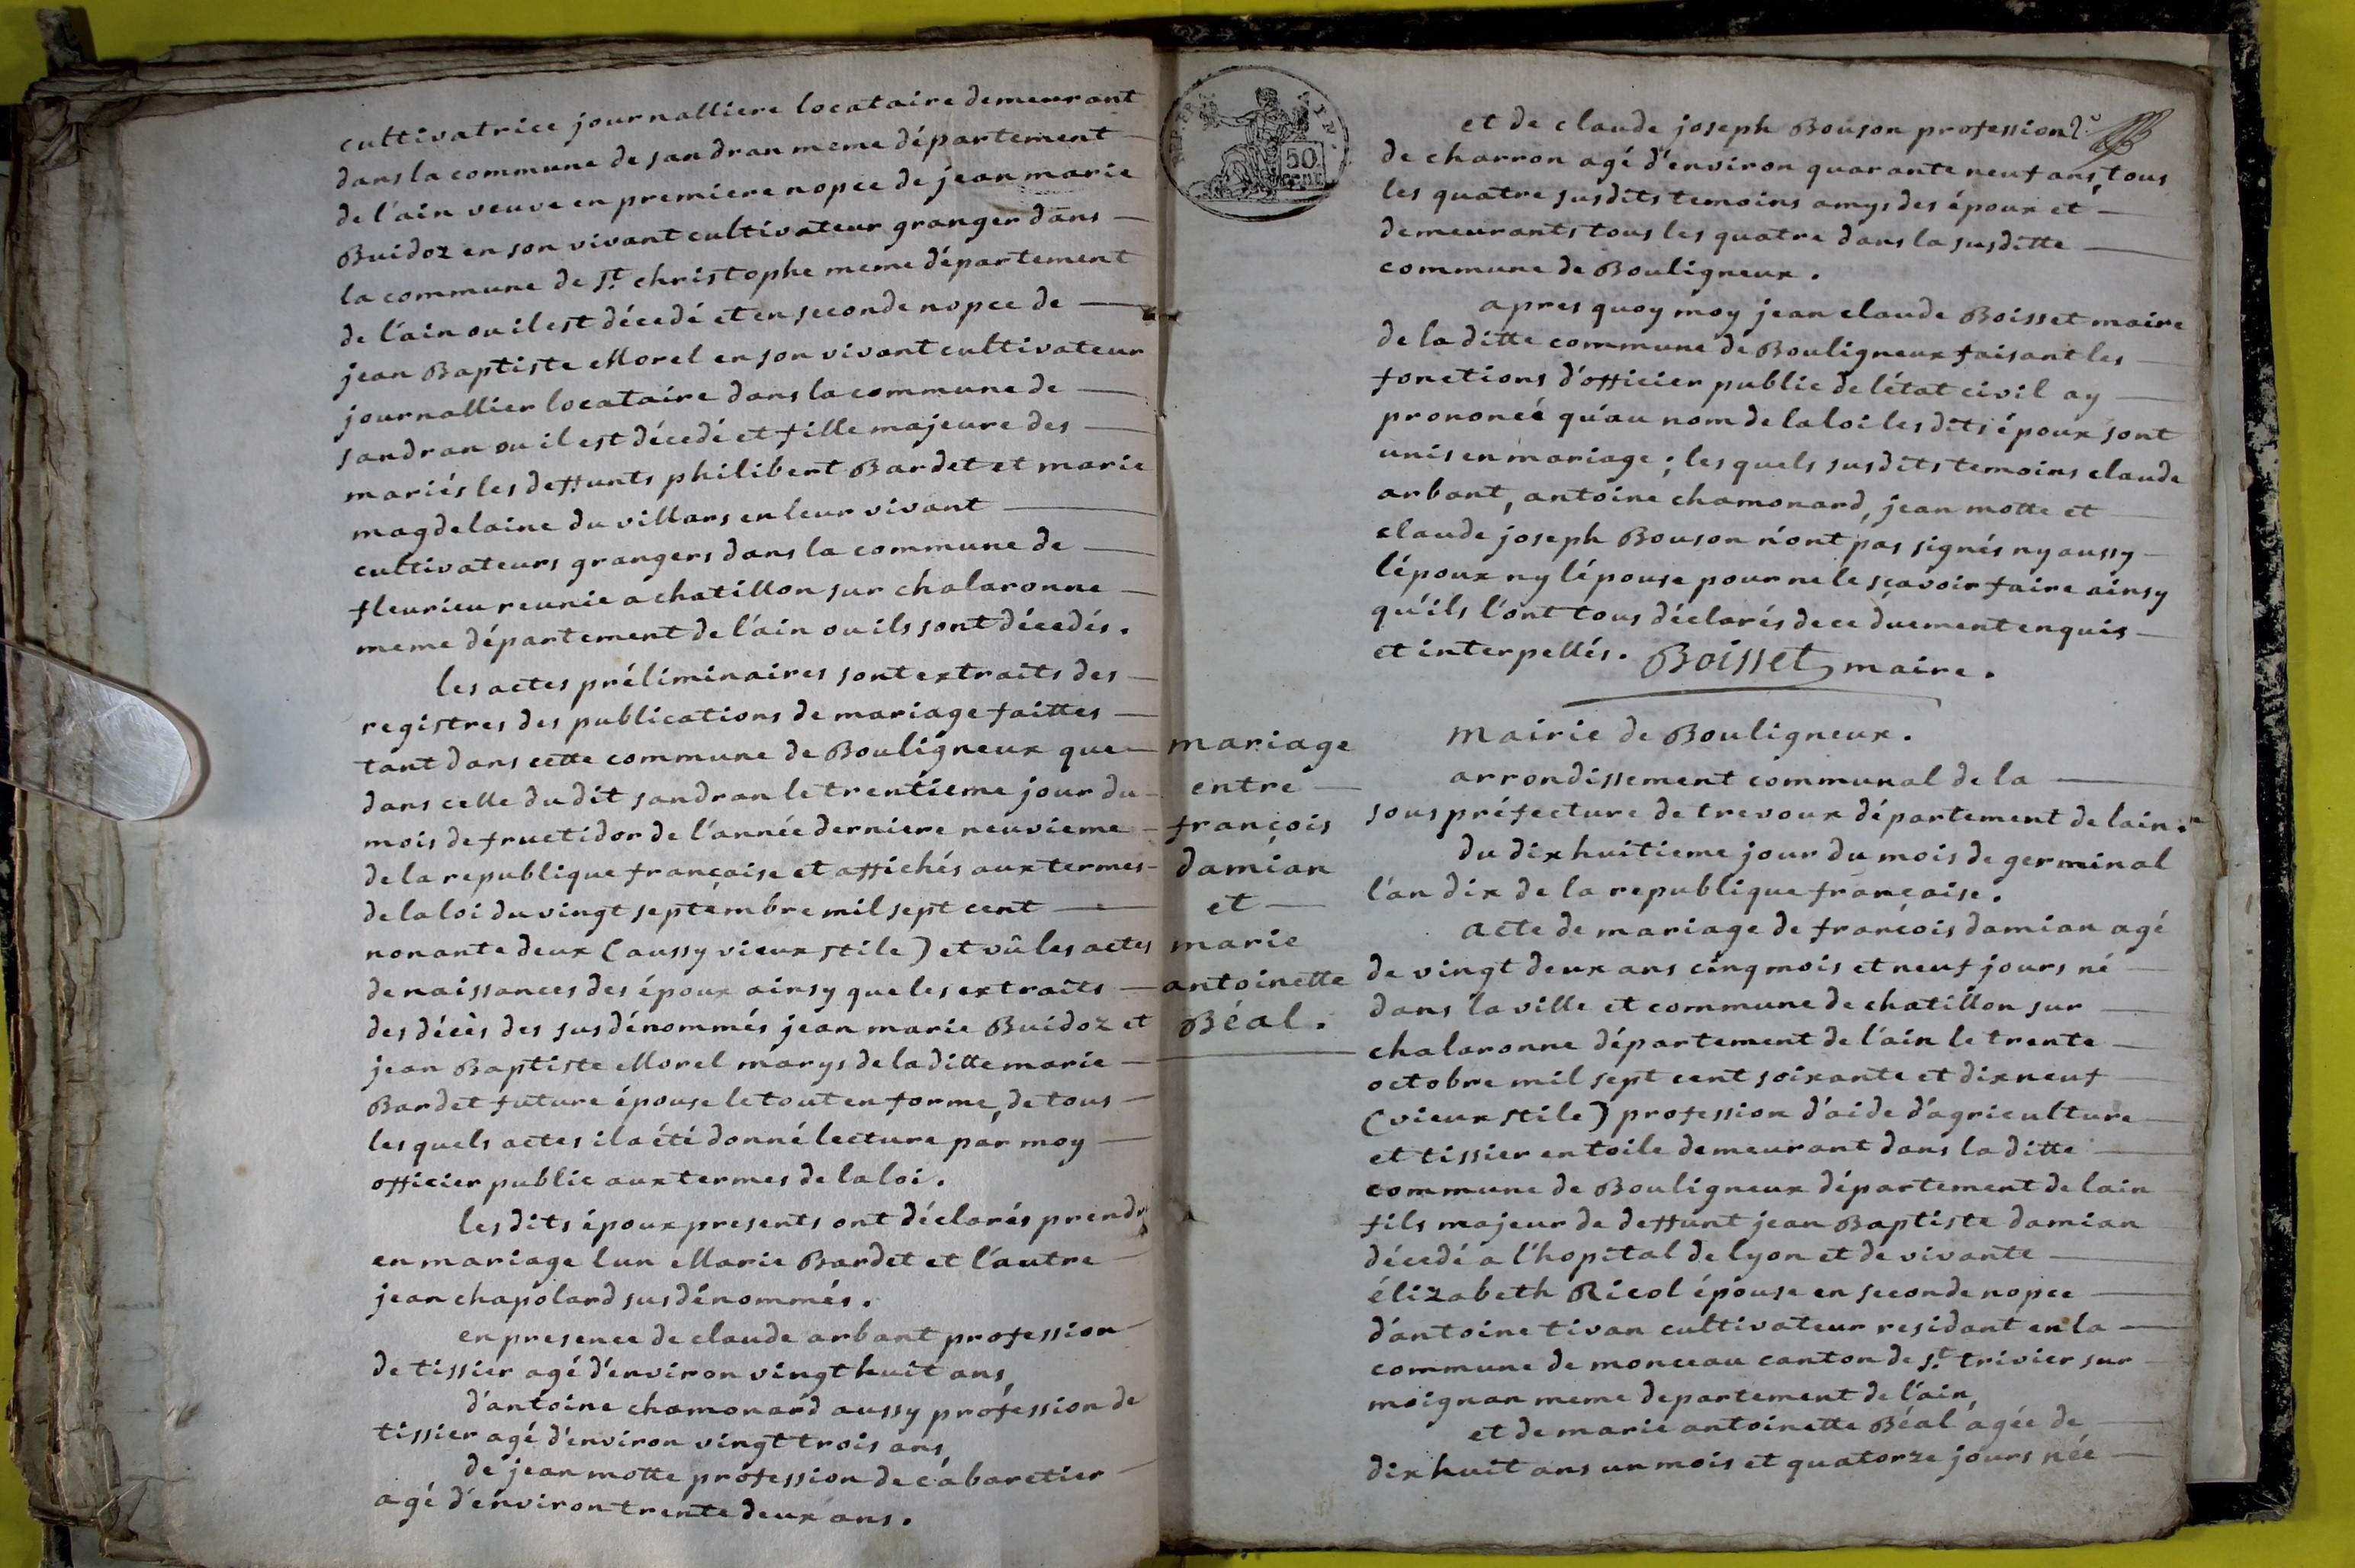 cultivatrice journalliere locataire demeurant
dans la commune de sandran meme département
de l'ain veuve en premiere nopce de jean marie
Buidoz en son vivant cultivateur granger dans
la commune de St. christophe meme département
de l'ain ou il est décedé et en seconde nopce de
jean Baptiste Morel en son vivant cultivateur
journallier locataire dans la commune de
sandran ou il est décedé et fille majeure des
mariés les deffunts philibert Bardet et marie
magdelaine du villars en leur vivant
cultivateurs grangers dans la commune de
fleurieu reunie a chatillon sur chalaronne
meme département de l'ain ou ils sont décedés.
les actes préliminaires sont extraits des
registres des publications de mariage faittes
tant dans cette commune de Bouligneux que
dans celle du dit sandran le trentieme jour du
mois de fructidor de l'année derniere neuvieme
de la republique française et affichés aux termes
de la loi du vingt septembre mil sept cent
nonante deux (aussy vieux stile) et vû les actes
de naissances des époux ainsy que les extraits
des décès des susdénommés jean marie Buidoz et
jean Baptiste Morel marys de la ditte marie
Bardet future épouse le tout en forme, de tous
les quels actes il a été donné lecture par moy
officier public aux termes de la loi.
les dits époux presents ont déclarés prendre
en mariage lun Marie Bardet et l'autre
jean chapolard susdénommés.
en presence de claude arbant profession
de tissier agé d'environ vingt huit ans,
d'antoine chamonard aussy profession de
tissier agé d'environ vingt trois ans,
de jean motte profession de cabaretier
agé d'environ trente deux ans.
50
et de claude joseph Bouson profession
de charron agé d'environ quarante neuf ans, tous
les quatre susdits temoins amys des époux et
demeurants tous les quatre dans la susditte
commune de Bouligneux.
apres quoy moy jean claude Boisset maire
de la ditte commune de Bouligneux faisant les
fonctions d'officier public de l'état civil ay
prononcé qu'au nom de la loi les dits époux sont
unis en mariage; les quels susdits temoins claude
arbant, antoine chamonard, jean motte et
claude joseph Bouson n'ont pas signés ny aussy
l'époux ny l'épouse pour ne le sçavoir faire ainsy
qu'ils l'ont tous déclarés de ce duement enquis
et interpellés. Boisset maire.
mariage
entre
françois
damian
et
marie
antoinette
Béal.
Mairie de Bouligneux.
arrondissement communal de la
sous préfecture de trevoux département de lain.
du dix huitieme jour du mois de germinal
l'an dix de la republique française.
acte de mariage de françois damian agé
de vingt deux ans cinq mois et neuf jours né
dans la ville et commune de chatillon sur
chalaronne département de l'ain le trente
octobre mil sept cent soixante et dix neuf
(vieux stile) profession d'aide d'agriculture
et tissier en toile demeurant dans la ditte
commune de Bouligneux département de lain
fils majeur de deffunt jean Baptiste damian
décedé a l'hopital de lyon et de vivante
élizabeth Ricol épouse en seconde nopce
d'antoine tivan cultivateur residant en la
commune de monceau canton de St. trivier sur
moignan meme departement de l'ain,
et de marie antoinette Béal agée de
dix huit ans un mois et quatorze jours née